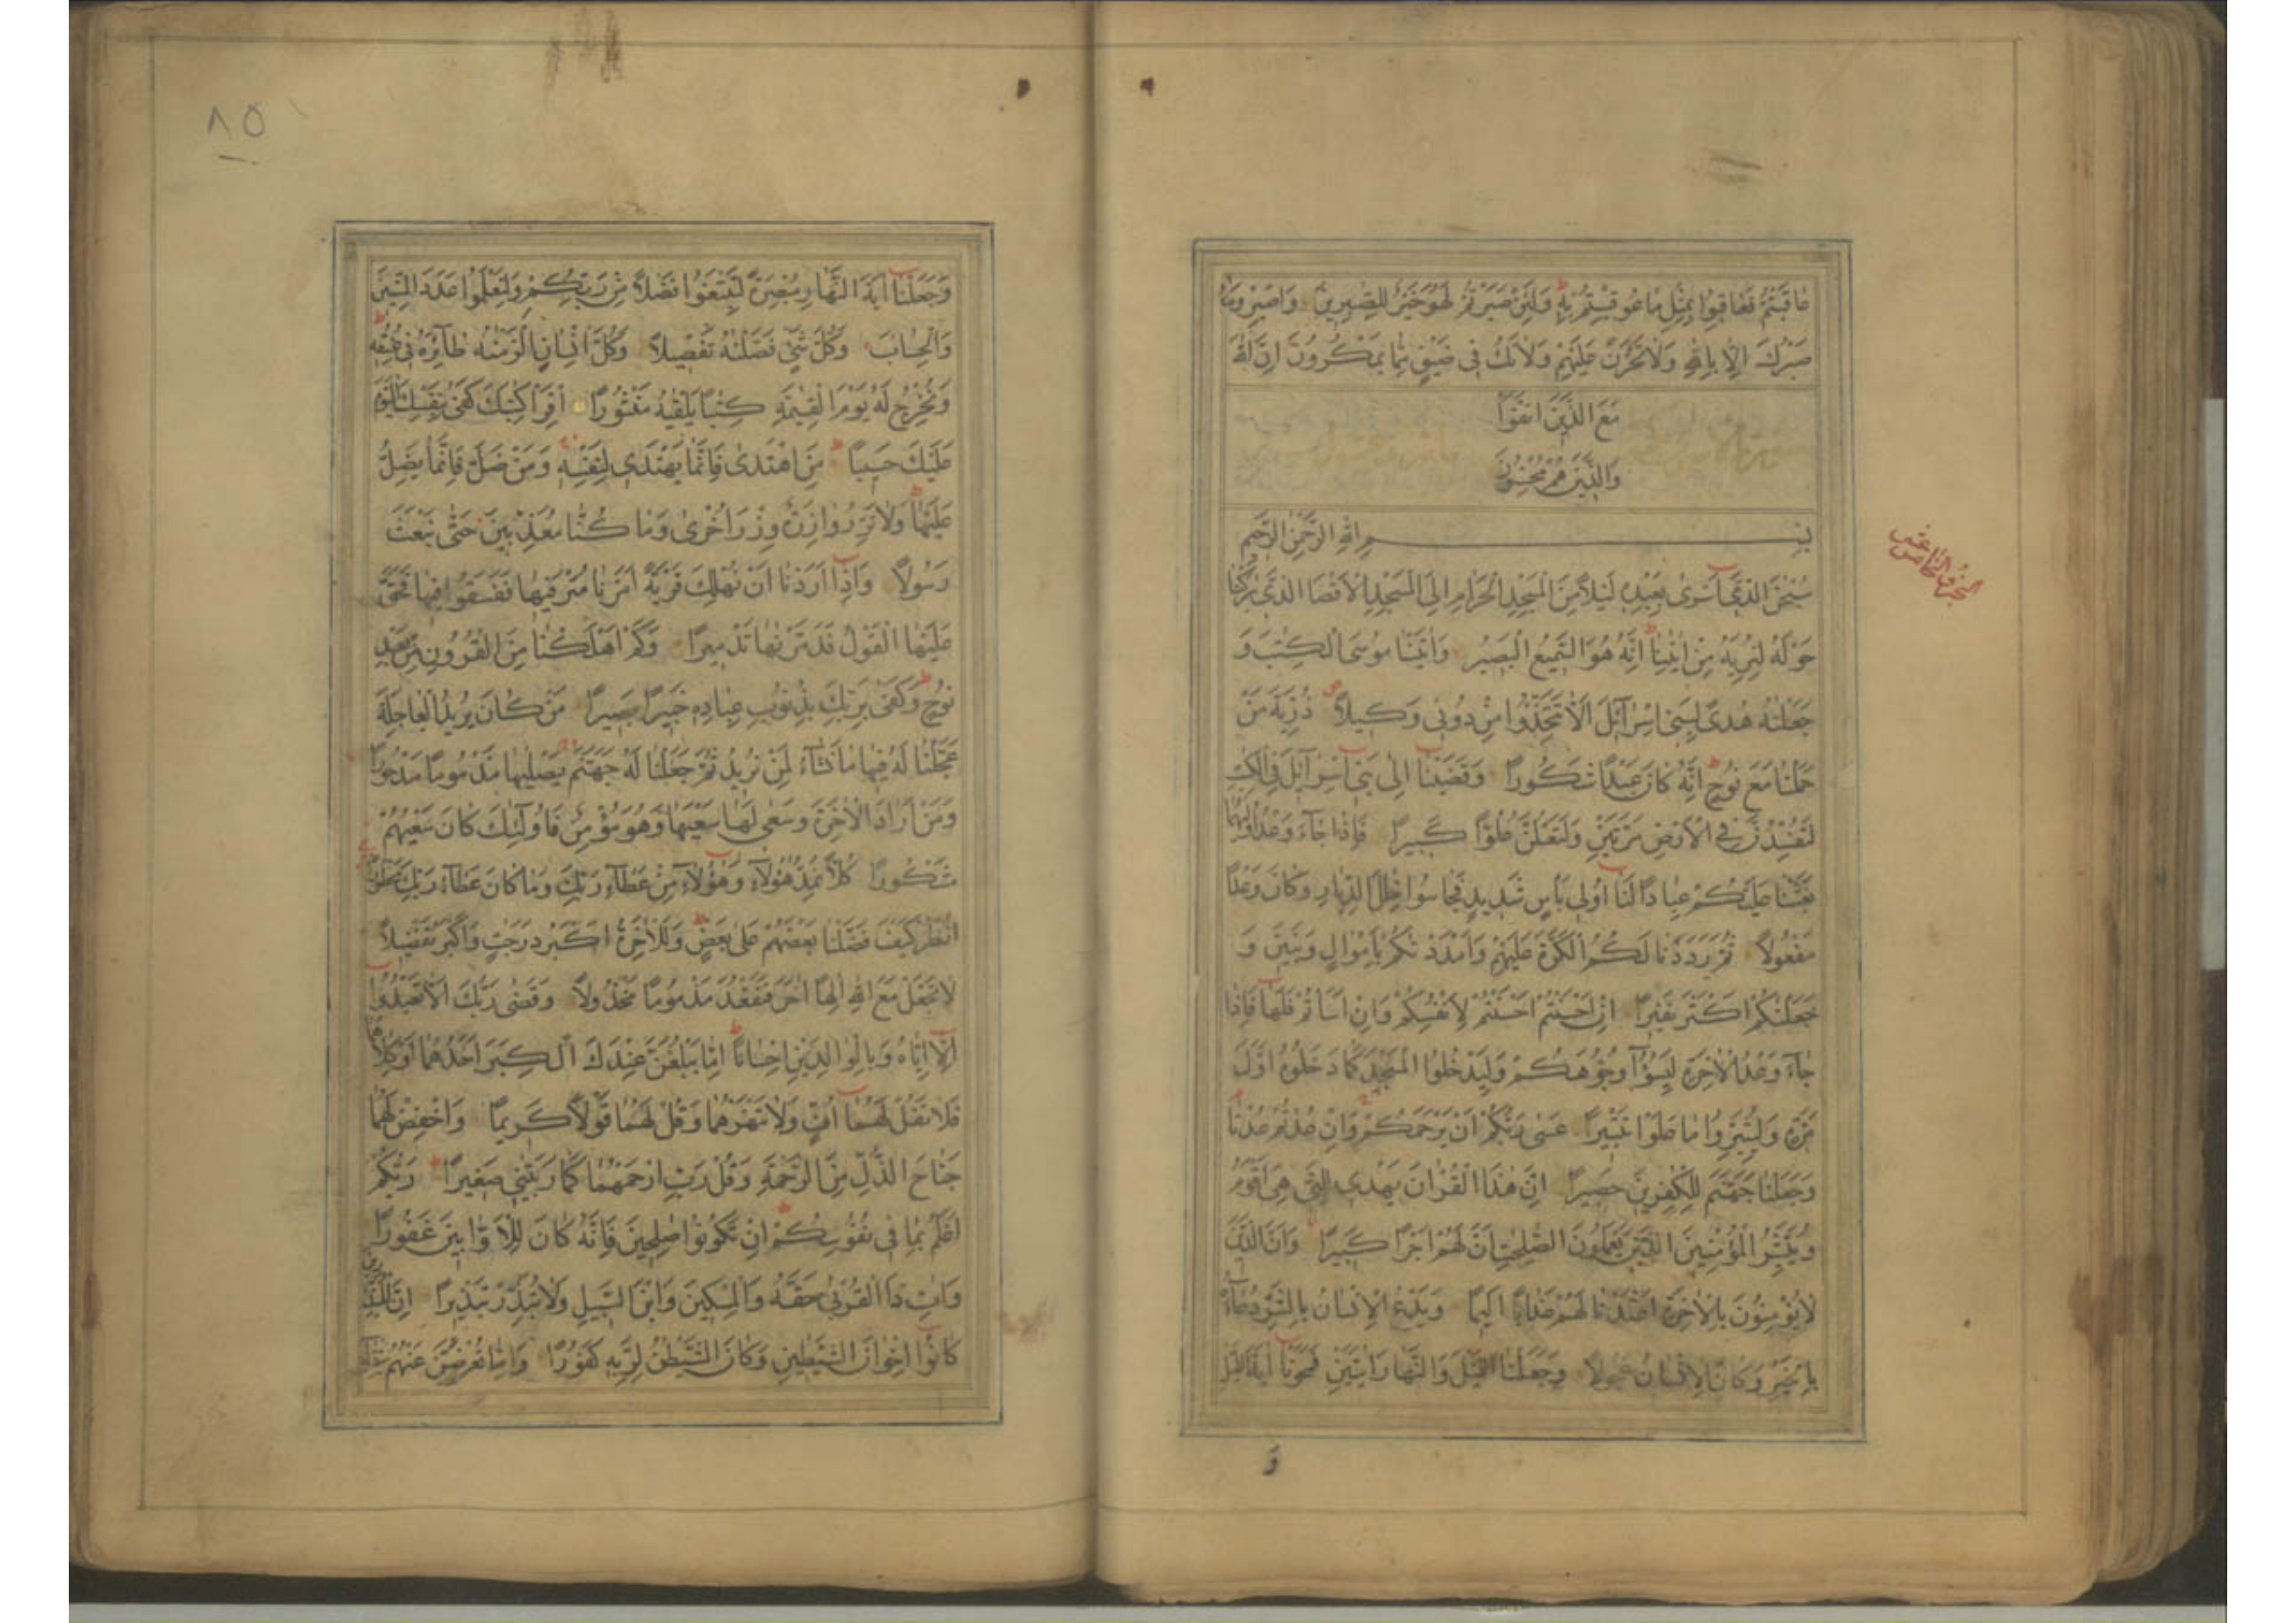 عَاقَبْتُمْ فَعَاقِبُوا بِمِثْلِ مَا عُوقِبْتُمْ بِهِ وَلَئِنْ صَبَرْتُمْ لَهُوَ خَيْرٌ لِلصّٰبِرِينَ وَاصْبِرْ وَمَا
صَبْرُكَ اِلَّا بِاللّٰهِ وَلَا تَحْزَنْ عَلَيْهِمْ وَلَا تَكُ فِى ضَيْقٍ مِمَّا يَمْكُرُونَ اِنَّ اللّٰهَ
مَعَ الَّذِينَ اتَّقَوْا
وَالَّذِينَ هُمْ مُحْسِنُونَ
بِسْمِ اللّٰهِ الرَّحْمٰنِ الرَّحِيمِ
سُبْحٰنَ الَّذِى اَسْرٰى بِعَبْدِهِ لَيْلًا مِنَ الْمَسْجِدِ الْحَرَامِ اِلَى الْمَسْجِدِ الْاَقْصَا الَّذِى بٰرَكْنَا
حَوْلَهُ لِنُرِيَهُ مِنْ اٰيٰتِنَا اِنَّهُ هُوَ السَّمِيعُ الْبَصِيرُ وَاٰتَيْنَا مُوسَى الْكِتٰبَ وَ
جَعَلْنٰهُ هُدًى لِبَنِى اِسْرَآئِلَ اَلَّا تَتَّخِذُوا مِنْ دُونِى وَكِيلًا ذُرِّيَّةَ مَنْ
حَمَلْنَا مَعَ نُوحٍ اِنَّهُ كَانَ عَبْدًا شَكُورًا وَقَضَيْنَا اِلٰى بَنِى اِسْرَآئِلَ فِى الْكِتٰبِ
لَتُفْسِدُنَّ فِى الْاَرْضِ مَرَّتَيْنِ وَلَتَعْلُنَّ عُلُوًّا كَبِيرًا فَاِذَا جَآءَ وَعْدُ اُولٰيهُمَا
بَعَثْنَا عَلَيْكُمْ عِبَادًا لَنَا اُولِى بَاْسٍ شَدِيدٍ فَجَاسُوا خِلٰلَ الدِّيَارِ وَكَانَ وَعْدًا
مَفْعُولًا ثُمَّ رَدَدْنَا لَكُمُ الْكَرَّةَ عَلَيْهِمْ وَاَمْدَدْنٰكُمْ بِاَمْوَالٍ وَبَنِينَ وَ
جَعَلْنٰكُمْ اَكْثَرَ نَفِيرًا اِنْ اَحْسَنْتُمْ اَحْسَنْتُمْ لِاَنْفُسِكُمْ وَاِنْ اَسَاْتُمْ فَلَهَا فَاِذَا
جَآءَ وَعْدُ الْاٰخِرَةِ لِيَسُوٓؤُا وُجُوهَكُمْ وَلِيَدْخُلُوا الْمَسْجِدَ كَمَا دَخَلُوهُ اَوَّلَ
مَرَّةٍ وَلِيُتَبِّرُوا مَا عَلَوْا تَتْبِيرًا عَسٰى رَبُّكُمْ اَنْ يَرْحَمَكُمْ وَاِنْ عُدْتُمْ عُدْنَا
وَجَعَلْنَا جَهَنَّمَ لِلْكٰفِرِينَ حَصِيرًا اِنَّ هٰذَا الْقُرْاٰنَ يَهْدِى لِلَّتِى هِىَ اَقْوَمُ
وَيُبَشِّرُ الْمُؤْمِنِينَ الَّذِينَ يَعْمَلُونَ الصّٰلِحٰتِ اَنَّ لَهُمْ اَجْرًا كَبِيرًا وَاَنَّ الَّذِينَ
لَا يُؤْمِنُونَ بِالْاٰخِرَةِ اَعْتَدْنَا لَهُمْ عَذَابًا اَلِيمًا وَيَدْعُ الْاِنْسَانُ بِالشَّرِّ دُعَآءَهُ
بِالْخَيْرِ وَكَانَ الْاِنْسَانُ عَجُولًا وَجَعَلْنَا الَّيْلَ وَالنَّهَارَ اٰيَتَيْنِ فَمَحَوْنَا اٰيَةَ الَّيْلِ
وَ
الجزء الخامس عشر
٨٥
وَجَعَلْنَا اٰيَةَ النَّهَارِ مُبْصِرَةً لِتَبْتَغُوا فَضْلًا مِنْ رَبِّكُمْ وَلِتَعْلَمُوا عَدَدَ السِّنِينَ
وَالْحِسَابَ وَكُلَّ شَىْءٍ فَصَّلْنٰهُ تَفْصِيلًا وَكُلَّ اِنْسَانٍ اَلْزَمْنٰهُ طَآئِرَهُ فِى عُنُقِهِ
وَنُخْرِجُ لَهُ يَوْمَ الْقِيٰمَةِ كِتٰبًا يَلْقٰيهُ مَنْشُورًا اِقْرَاْ كِتٰبَكَ كَفٰى بِنَفْسِكَ الْيَوْمَ
عَلَيْكَ حَسِيبًا مَنِ اهْتَدٰى فَاِنَّمَا يَهْتَدِى لِنَفْسِهِ وَمَنْ ضَلَّ فَاِنَّمَا يَضِلُّ
عَلَيْهَا وَلَا تَزِرُ وَازِرَةٌ وِزْرَ اُخْرٰى وَمَا كُنَّا مُعَذِّبِينَ حَتّٰى نَبْعَثَ
رَسُولًا وَاِذَا اَرَدْنَا اَنْ نُهْلِكَ قَرْيَةً اَمَرْنَا مُتْرَفِيهَا فَفَسَقُوا فِيهَا فَحَقَّ
عَلَيْهَا الْقَوْلُ فَدَمَّرْنٰهَا تَدْمِيرًا وَكَمْ اَهْلَكْنَا مِنَ الْقُرُونِ مِنْ بَعْدِ
نُوحٍ وَكَفٰى بِرَبِّكَ بِذُنُوبِ عِبَادِهِ خَبِيرًا بَصِيرًا مَنْ كَانَ يُرِيدُ الْعَاجِلَةَ
عَجَّلْنَا لَهُ فِيهَا مَا نَشَآءُ لِمَنْ نُرِيدُ ثُمَّ جَعَلْنَا لَهُ جَهَنَّمَ يَصْلٰيهَا مَذْمُومًا مَدْحُورًا
وَمَنْ اَرَادَ الْاٰخِرَةَ وَسَعٰى لَهَا سَعْيَهَا وَهُوَ مُؤْمِنٌ فَاُولٰٓئِكَ كَانَ سَعْيُهُمْ
مَشْكُورًا كُلًّا نُمِدُّ هٰٓؤُلَآءِ وَهٰٓؤُلَآءِ مِنْ عَطَآءِ رَبِّكَ وَمَا كَانَ عَطَآءُ رَبِّكَ مَحْظُورًا
اُنْظُرْ كَيْفَ فَضَّلْنَا بَعْضَهُمْ عَلٰى بَعْضٍ وَلَلْاٰخِرَةُ اَكْبَرُ دَرَجٰتٍ وَاَكْبَرُ تَفْضِيلًا
لَا تَجْعَلْ مَعَ اللّٰهِ اِلٰهًا اٰخَرَ فَتَقْعُدَ مَذْمُومًا مَخْذُولًا وَقَضٰى رَبُّكَ اَلَّا تَعْبُدُوا
اِلَّا اِيَّاهُ وَبِالْوَالِدَيْنِ اِحْسَانًا اِمَّا يَبْلُغَنَّ عِنْدَكَ الْكِبَرَ اَحَدُهُمَا اَوْ كِلَاهُمَا
فَلَا تَقُلْ لَهُمَا اُفٍّ وَلَا تَنْهَرْهُمَا وَقُلْ لَهُمَا قَوْلًا كَرِيمًا وَاخْفِضْ لَهُمَا
جَنَاحَ الذُّلِّ مِنَ الرَّحْمَةِ وَقُلْ رَبِّ ارْحَمْهُمَا كَمَا رَبَّيٰنِى صَغِيرًا رَبُّكُمْ
اَعْلَمُ بِمَا فِى نُفُوسِكُمْ اِنْ تَكُونُوا صٰلِحِينَ فَاِنَّهُ كَانَ لِلْاَوَّابِينَ غَفُورًا
وَاٰتِ ذَا الْقُرْبٰى حَقَّهُ وَالْمِسْكِينَ وَابْنَ السَّبِيلِ وَلَا تُبَذِّرْ تَبْذِيرًا اِنَّ الْمُبَذِّرِينَ
كَانُوا اِخْوَانَ الشَّيٰطِينِ وَكَانَ الشَّيْطٰنُ لِرَبِّهِ كَفُورًا وَاِمَّا تُعْرِضَنَّ عَنْهُمُ